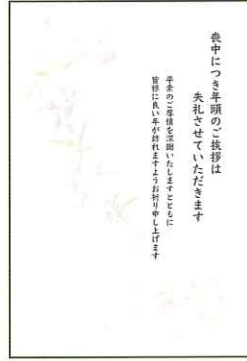 喪中につき年頭のご挨拶は
失礼させていただきます
平素のご厚情を深謝いたしますとともに
皆様に良い年が訪れますようお祈り申し上げます